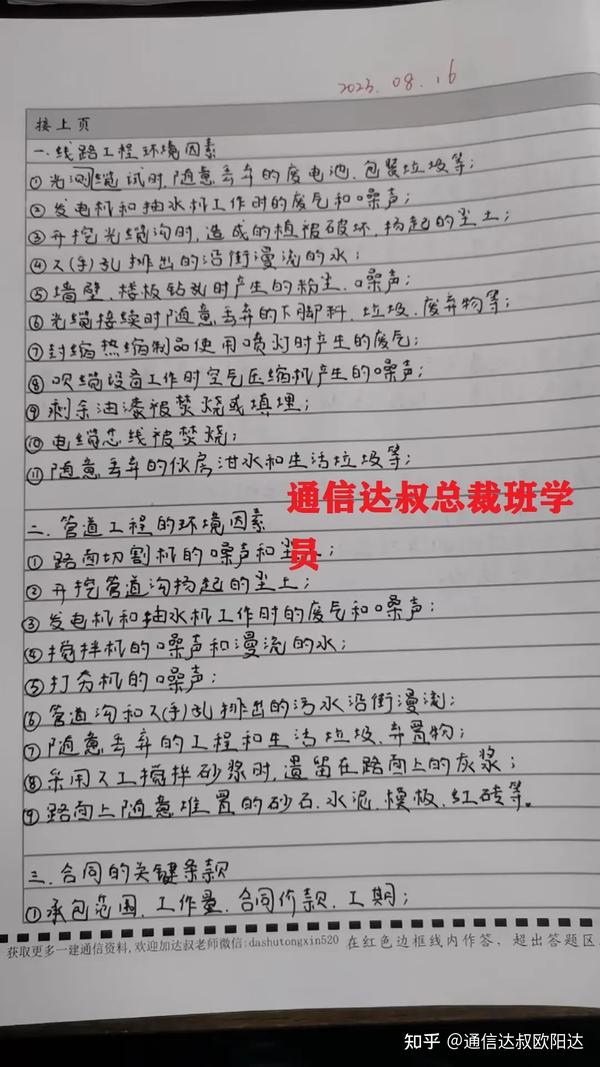 2023.08.16
接上页
一.线路工程环境因素
①光测缆试时,随意丢弃的废电池.包装垃圾等;
②发电机和抽水机工作时的废气和噪声;
③开挖光缆沟时,造成的植被破坏.扬起的尘土;
④人(手)孔排出的沿街漫流的水;
⑤墙壁.楼板钻孔时产生的粉尘.噪声;
⑥光缆接续时随意丢弃的下脚料.垃圾.废弃物等;
⑦封缩热缩制品使用喷灯时产生的废气;
⑧吹缆设备工作时空气压缩机产生的噪声;
⑨剩余油漆被焚烧或填埋;
⑩电缆芯线被焚烧;
⑪随意丢弃的伙房泔水和生活垃圾等;
通信达叔总裁班学员
二.管道工程的环境因素
①路面切割机的噪声和尘土;
②开挖管道沟扬起的尘土;
③发电机和抽水机工作时的废气和噪声;
④搅拌机的噪声和漫流的水;
⑤打夯机的噪声;
⑥管道沟和人(手)孔排出的污水沿街漫流;
⑦随意丢弃的工程和生活垃圾.弃置物;
⑧采用人工搅拌砂浆时,遗留在路面上的灰浆;
⑨路面上随意堆置的砂石.水泥.模板.红砖等。
三.合同的关键条款
①承包范围.工作量.合同价款.工期;
获取更多一建通信资料,欢迎加达叔老师微信:dashutongxin520 在红色边框线内作答,超出答题区
知乎 @通信达叔欧阳达